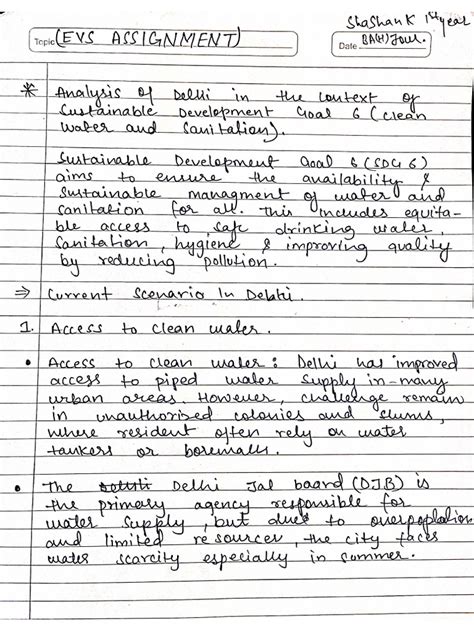 Shashank 1st year
Topic (EVS ASSIGNMENT)
Date BA(H) Jour.
* Analysis of Delhi in the context of
Sustainable Development Goal 6 (clean
water and Sanitation).
Sustainable Development Goal 6 (SDG 6)
aims to ensure the availability &
Sustainable managment of water and
sanitation for all. This Includes equita-
ble access to safe drinking water,
Sanitation, hygiene & improving quality
by reducing pollution.
⇒ Current Scenario In Delhi.
1. Access to clean water.
• Access to clean water : Delhi has improved
access to piped water supply in-many
urban areas. However, challenge remain
in unauthorised colonies and slums,
where resident often rely on water
tankers or borewells.
• The Delhi Jal board (DJB) is
the primary agency responsible for
water supply, but due to overpoplation
and limited resources, the city faces
water scarcity especially in summer.